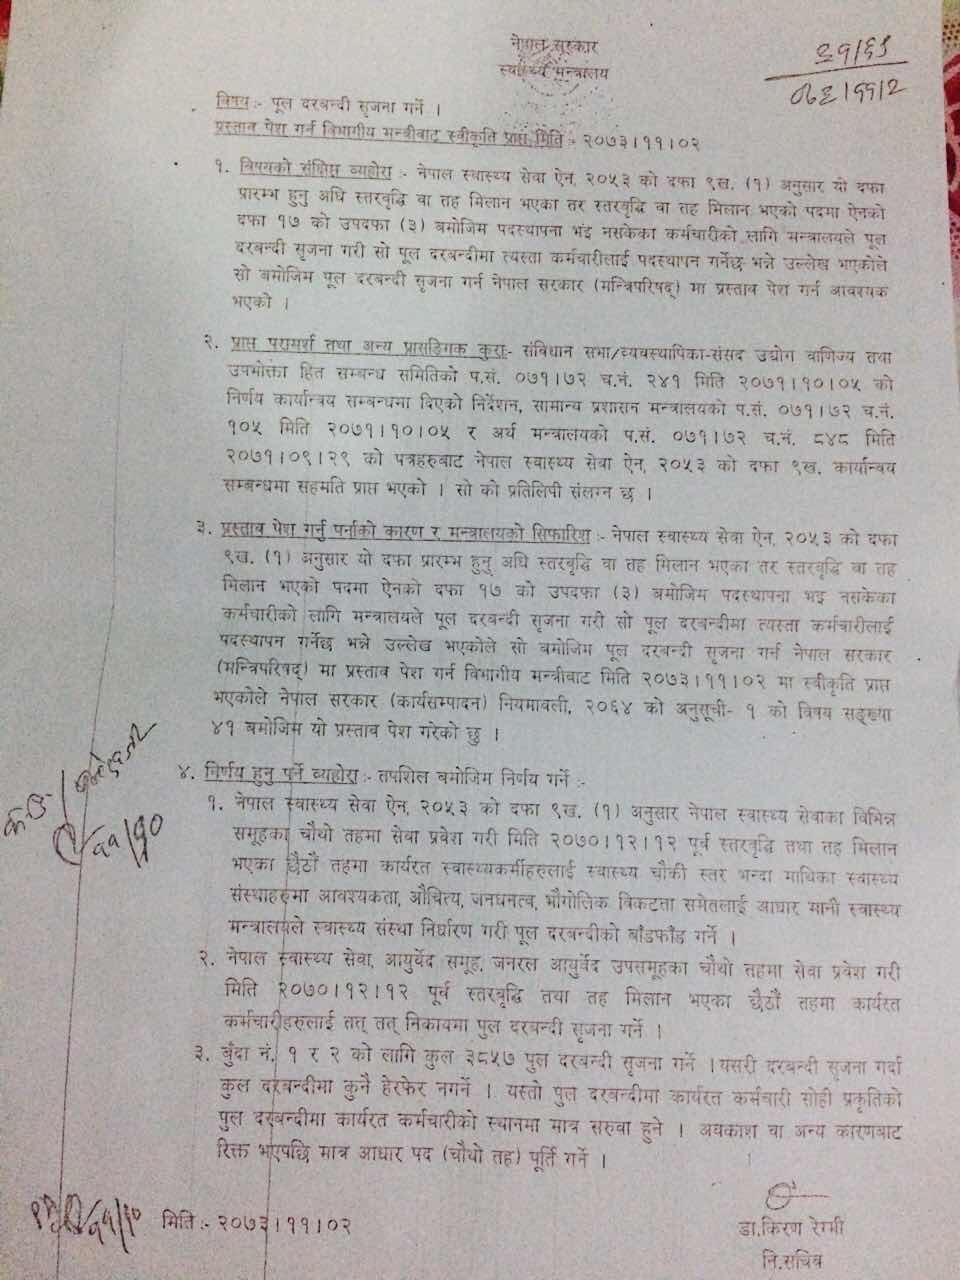 नेपाल सरकार
स्वास्थ्य मन्त्रालय
विषय :- पूल दरबन्दी सृजना गर्ने ।
प्रस्ताव पेश गर्न विभागीय मन्त्रीबाट स्वीकृति प्राप्त मिति :- २०७३।११।०२
१. विषयको संक्षिप्त व्यहोरा :- नेपाल स्वास्थ्य सेवा ऐन, २०५३ को दफा ९ख. (१) अनुसार यो दफा
प्रारम्भ हुनु अघि स्तरवृद्धि वा तह मिलान भएका तर स्तरवृद्धि वा तह मिलान भएको पदमा ऐनको
दफा १७ को उपदफा (३) बमोजिम पदस्थापना भई नसकेका कर्मचारीको लागि मन्त्रालयले पूल
दरबन्दी सृजना गरी सो पूल दरबन्दीमा त्यस्ता कर्मचारीलाई पदस्थापन गर्नेछ भन्ने उल्लेख भएकोले
सो बमोजिम पूल दरबन्दी सृजना गर्न नेपाल सरकार (मन्त्रिपरिषद्) मा प्रस्ताव पेश गर्न आवश्यक
भएको ।
२. प्राप्त परामर्श तथा अन्य प्रासङ्गिक कुरा:- संविधान सभा/व्यवस्थापिका-संसद उद्योग वाणिज्य तथा
उपभोक्ता हित सम्बन्ध समितिको प.सं. ०७१।७२ च.नं. २४१ मिति २०७१।१०।०५ को
निर्णय कार्यान्वय सम्बन्धमा दिएको निर्देशन, सामान्य प्रशासन मन्त्रालयको प.सं. ०७१।७२ च.नं.
१०५ मिति २०७१।१०।०५ र अर्थ मन्त्रालयको प.सं. ०७१।७२ च.नं. ८४८ मिति
२०७१।०९।२९ को पत्रहरुबाट नेपाल स्वास्थ्य सेवा ऐन, २०५३ को दफा ९ख. कार्यान्वय
सम्बन्धमा सहमति प्राप्त भएको । सो को प्रतिलिपी संलग्न छ ।
३. प्रस्ताव पेश गर्नु पर्नाको कारण र मन्त्रालयको सिफारिश :- नेपाल स्वास्थ्य सेवा ऐन, २०५३ को दफा
९ख. (१) अनुसार यो दफा प्रारम्भ हुनु अघि स्तरवृद्धि वा तह मिलान भएका तर स्तरवृद्धि वा तह
मिलान भएको पदमा ऐनको दफा १७ को उपदफा (३) बमोजिम पदस्थापना भइ नसकेका
कर्मचारीको लागि मन्त्रालयले पूल दरबन्दी सृजना गरी सो पूल दरबन्दीमा त्यस्ता कर्मचारीलाई
पदस्थापन गर्नेछ भन्ने उल्लेख भएकोले सो बमोजिम पूल दरबन्दी सृजना गर्न नेपाल सरकार
(मन्त्रिपरिषद्) मा प्रस्ताव पेश गर्न विभागीय मन्त्रीबाट मिति २०७३।११।०२ मा स्वीकृति प्राप्त
भएकोले नेपाल सरकार (कार्यसम्पादन) नियमावली, २०६४ को अनुसूची- १ को विषय सङ्ख्या
४१ बमोजिम यो प्रस्ताव पेश गरेको छु ।
४. निर्णय हुनु पर्ने व्यहोरा :- तपशिल बमोजिम निर्णय गर्ने :-
१. नेपाल स्वास्थ्य सेवा ऐन, २०५३ को दफा ९ख. (१) अनुसार नेपाल स्वास्थ्य सेवाका विभिन्न
समूहका चौथो तहमा सेवा प्रवेश गरी मिति २०७०।१२।१२ पूर्व स्तरवृद्धि तथा तह मिलान
भएका छैठौं तहमा कार्यरत स्वास्थ्यकर्मीहरुलाई स्वास्थ्य चौकी स्तर भन्दा माथिका स्वास्थ्य
संस्थाहरुमा आवश्यकता, औचित्य, जनघनत्व, भौगोलिक विकटता समेतलाई आधार मानी स्वास्थ्य
मन्त्रालयले स्वास्थ्य संस्था निर्धारण गरी पूल दरबन्दीको बाँडफाँड गर्ने ।
२. नेपाल स्वास्थ्य सेवा, आयुर्वेद समूह, जनरल आयुर्वेद उपसमूहका चौथो तहमा सेवा प्रवेश गरी
मिति २०७०।१२।१२ पूर्व स्तरवृद्धि तथा तह मिलान भएका छैठौं तहमा कार्यरत
कर्मचारीहरुलाई तत् तत् निकायमा पुल दरबन्दी सृजना गर्ने ।
३. बुँदा नं. १ र २ को लागि कुल ३८५७ पुल दरबन्दी सृजना गर्ने ।यसरी दरबन्दी सृजना गर्दा
कुल दरबन्दीमा कुनै हेरफेर नगर्ने । यस्तो पुल दरबन्दीमा कार्यरत कर्मचारी सोही प्रकृतिको
पुल दरबन्दीमा कार्यरत कर्मचारीको स्थानमा मात्र सरुवा हुने । अवकाश वा अन्य कारणबाट
रिक्त भएपछि मात्र आधार पद (चौथो तह) पूर्ति गर्ने ।
मिति :- २०७३।११।०२
डा.किरण रेग्मी
नि.सचिव